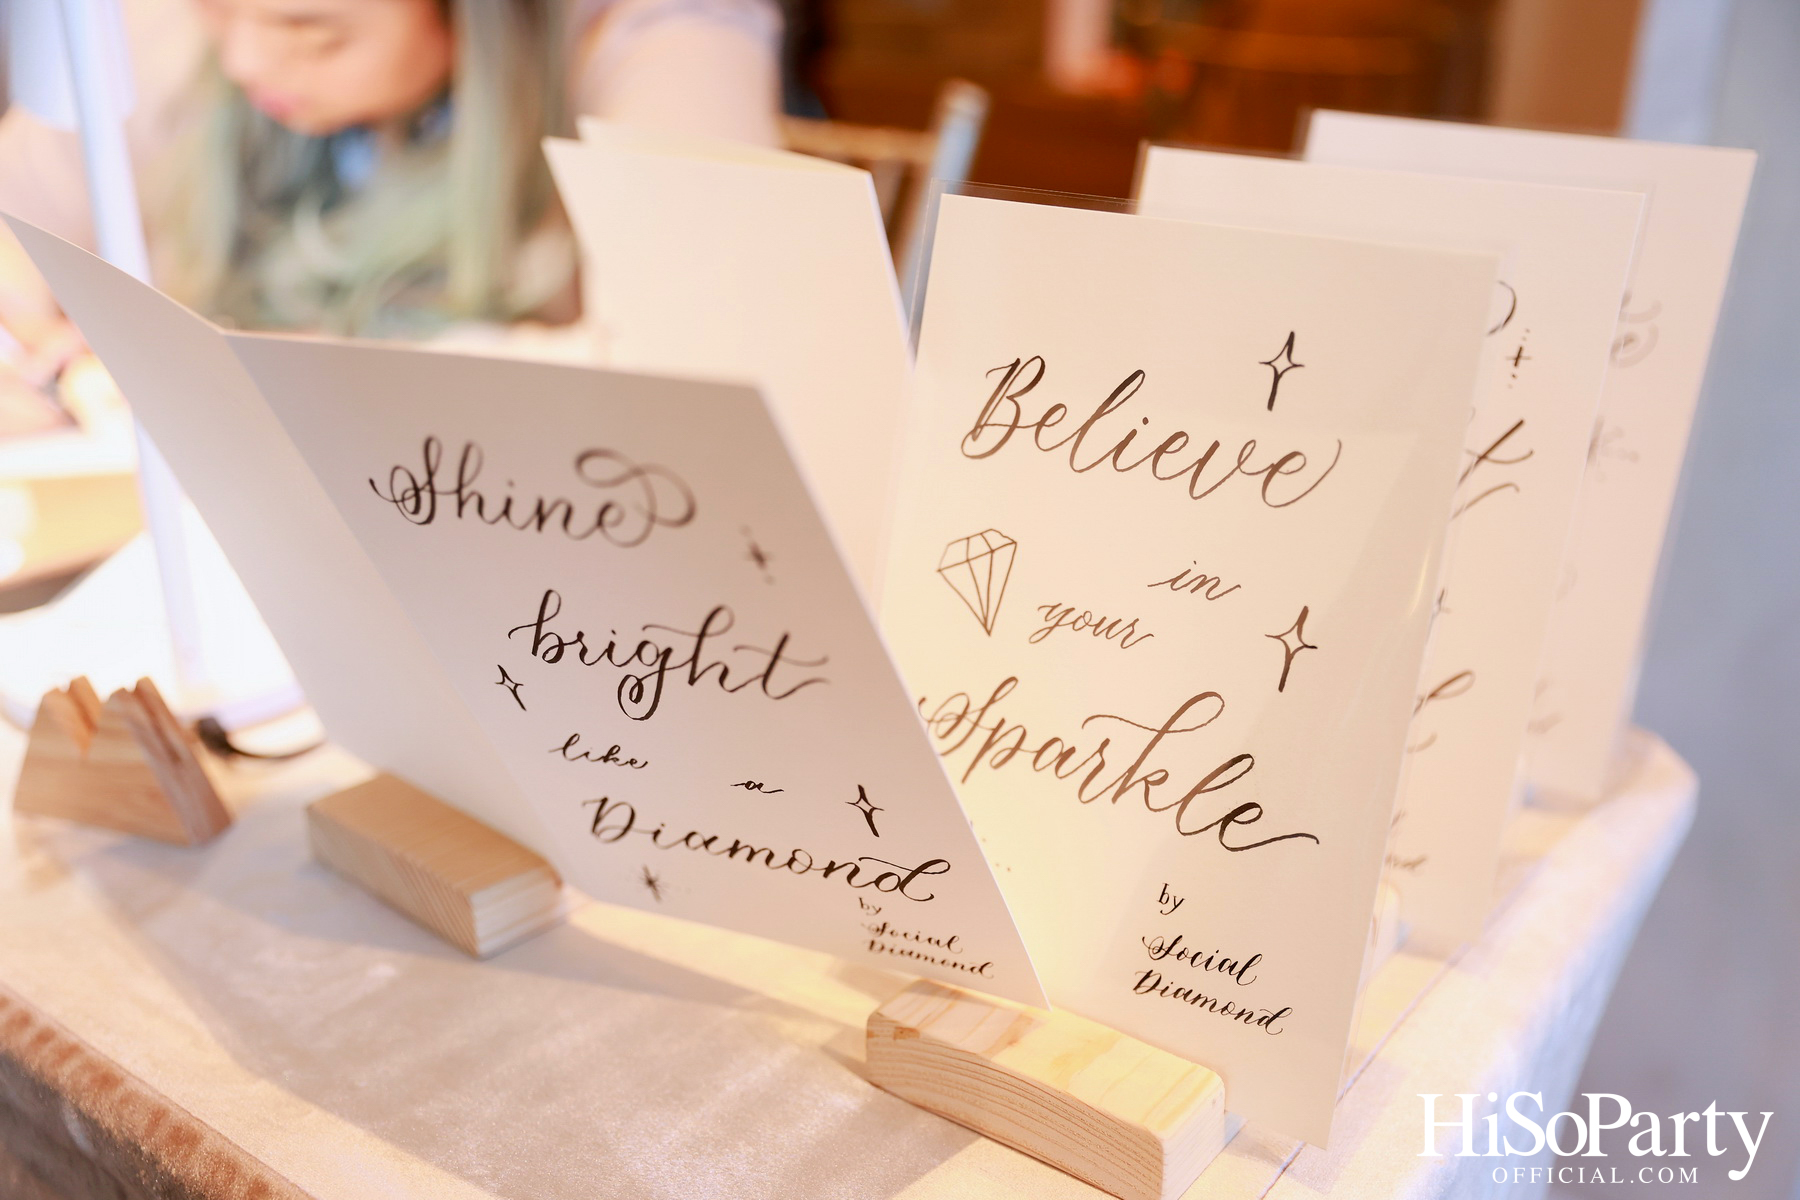 Shine
bright
like a
Diamond
by
Social
Diamond
Believe
in
your
Sparkle
by
Social
Diamond
HiSoParty
OFFICIAL.COM